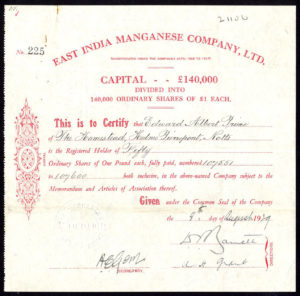 21106
No. 225
EAST INDIA MANGANESE COMPANY, LTD.
CAPITAL - - £140,000
DIVIDED INTO
140,000 ORDINARY SHARES OF £1 EACH.
This is to Certify that Edward Albert
of The Homestead, Notts
is the Registered Holder of Fifty
Ordinary Shares of One Pound each, fully paid, numbered 107551
to 107600 both inclusive, in the above-named Company subject to the
Memorandum and Articles of Association thereof.
Given under the Common Seal of the Company
the 9th day of August 1929
SECRETARY.
DIRECTORS.